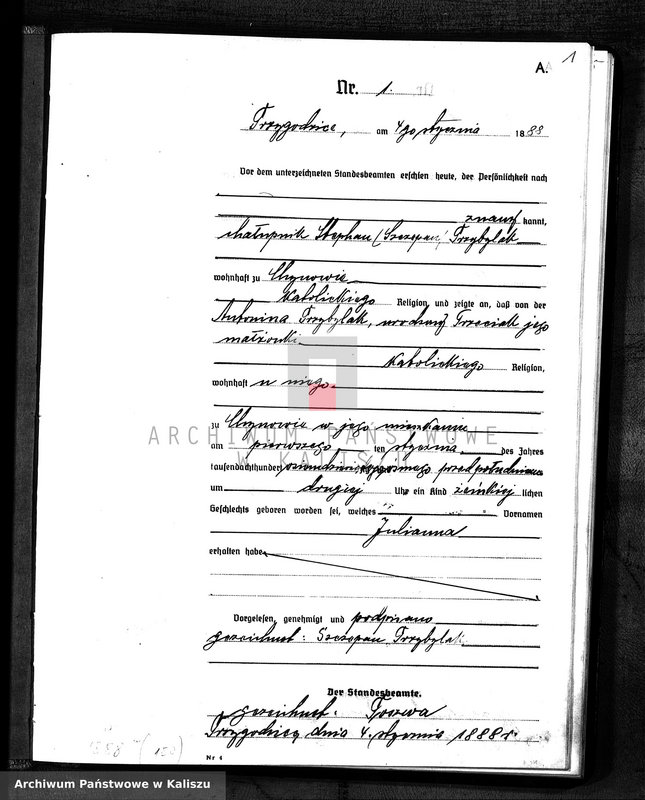 A. 1
Nr. 1.
Przygodzice, am 4go stycznia 1888
Vor dem unterzeichneten Standesbeamten erschien heute, der Persönlichkeit nach
znany kannt,
chałupnik Stephan (Szczepan) Przybylak
wohnhaft zu Chynowie
Katolickiego Religion, und zeigte an, daß von der
Antonina Przybylak, urodzony Trzeciak jego
małżonki
Katolickiego Religion,
wohnhaft u niego
zu Chynowie w jego mieszkaniu
am pierwszego ten stycznia des Jahres
tausendachthundert przedpołudniem
um drugiej Uhr ein Kind żeńskiej lichen
Geschlechts geboren worden sei, welches Vornamen
Julianna
erhalten habe
Vorgelesen, genehmigt und podpisano
gezeichnet: Szczepan Przybylak
Der Standesbeamte.
gezeichnet:
Przygodzice, dnia 4. stycznia 1888 r.
Nr 4
(150)
ARCHIWUM PAŃSTWOWE
W KALISZU
Archiwum Państwowe w Kaliszu